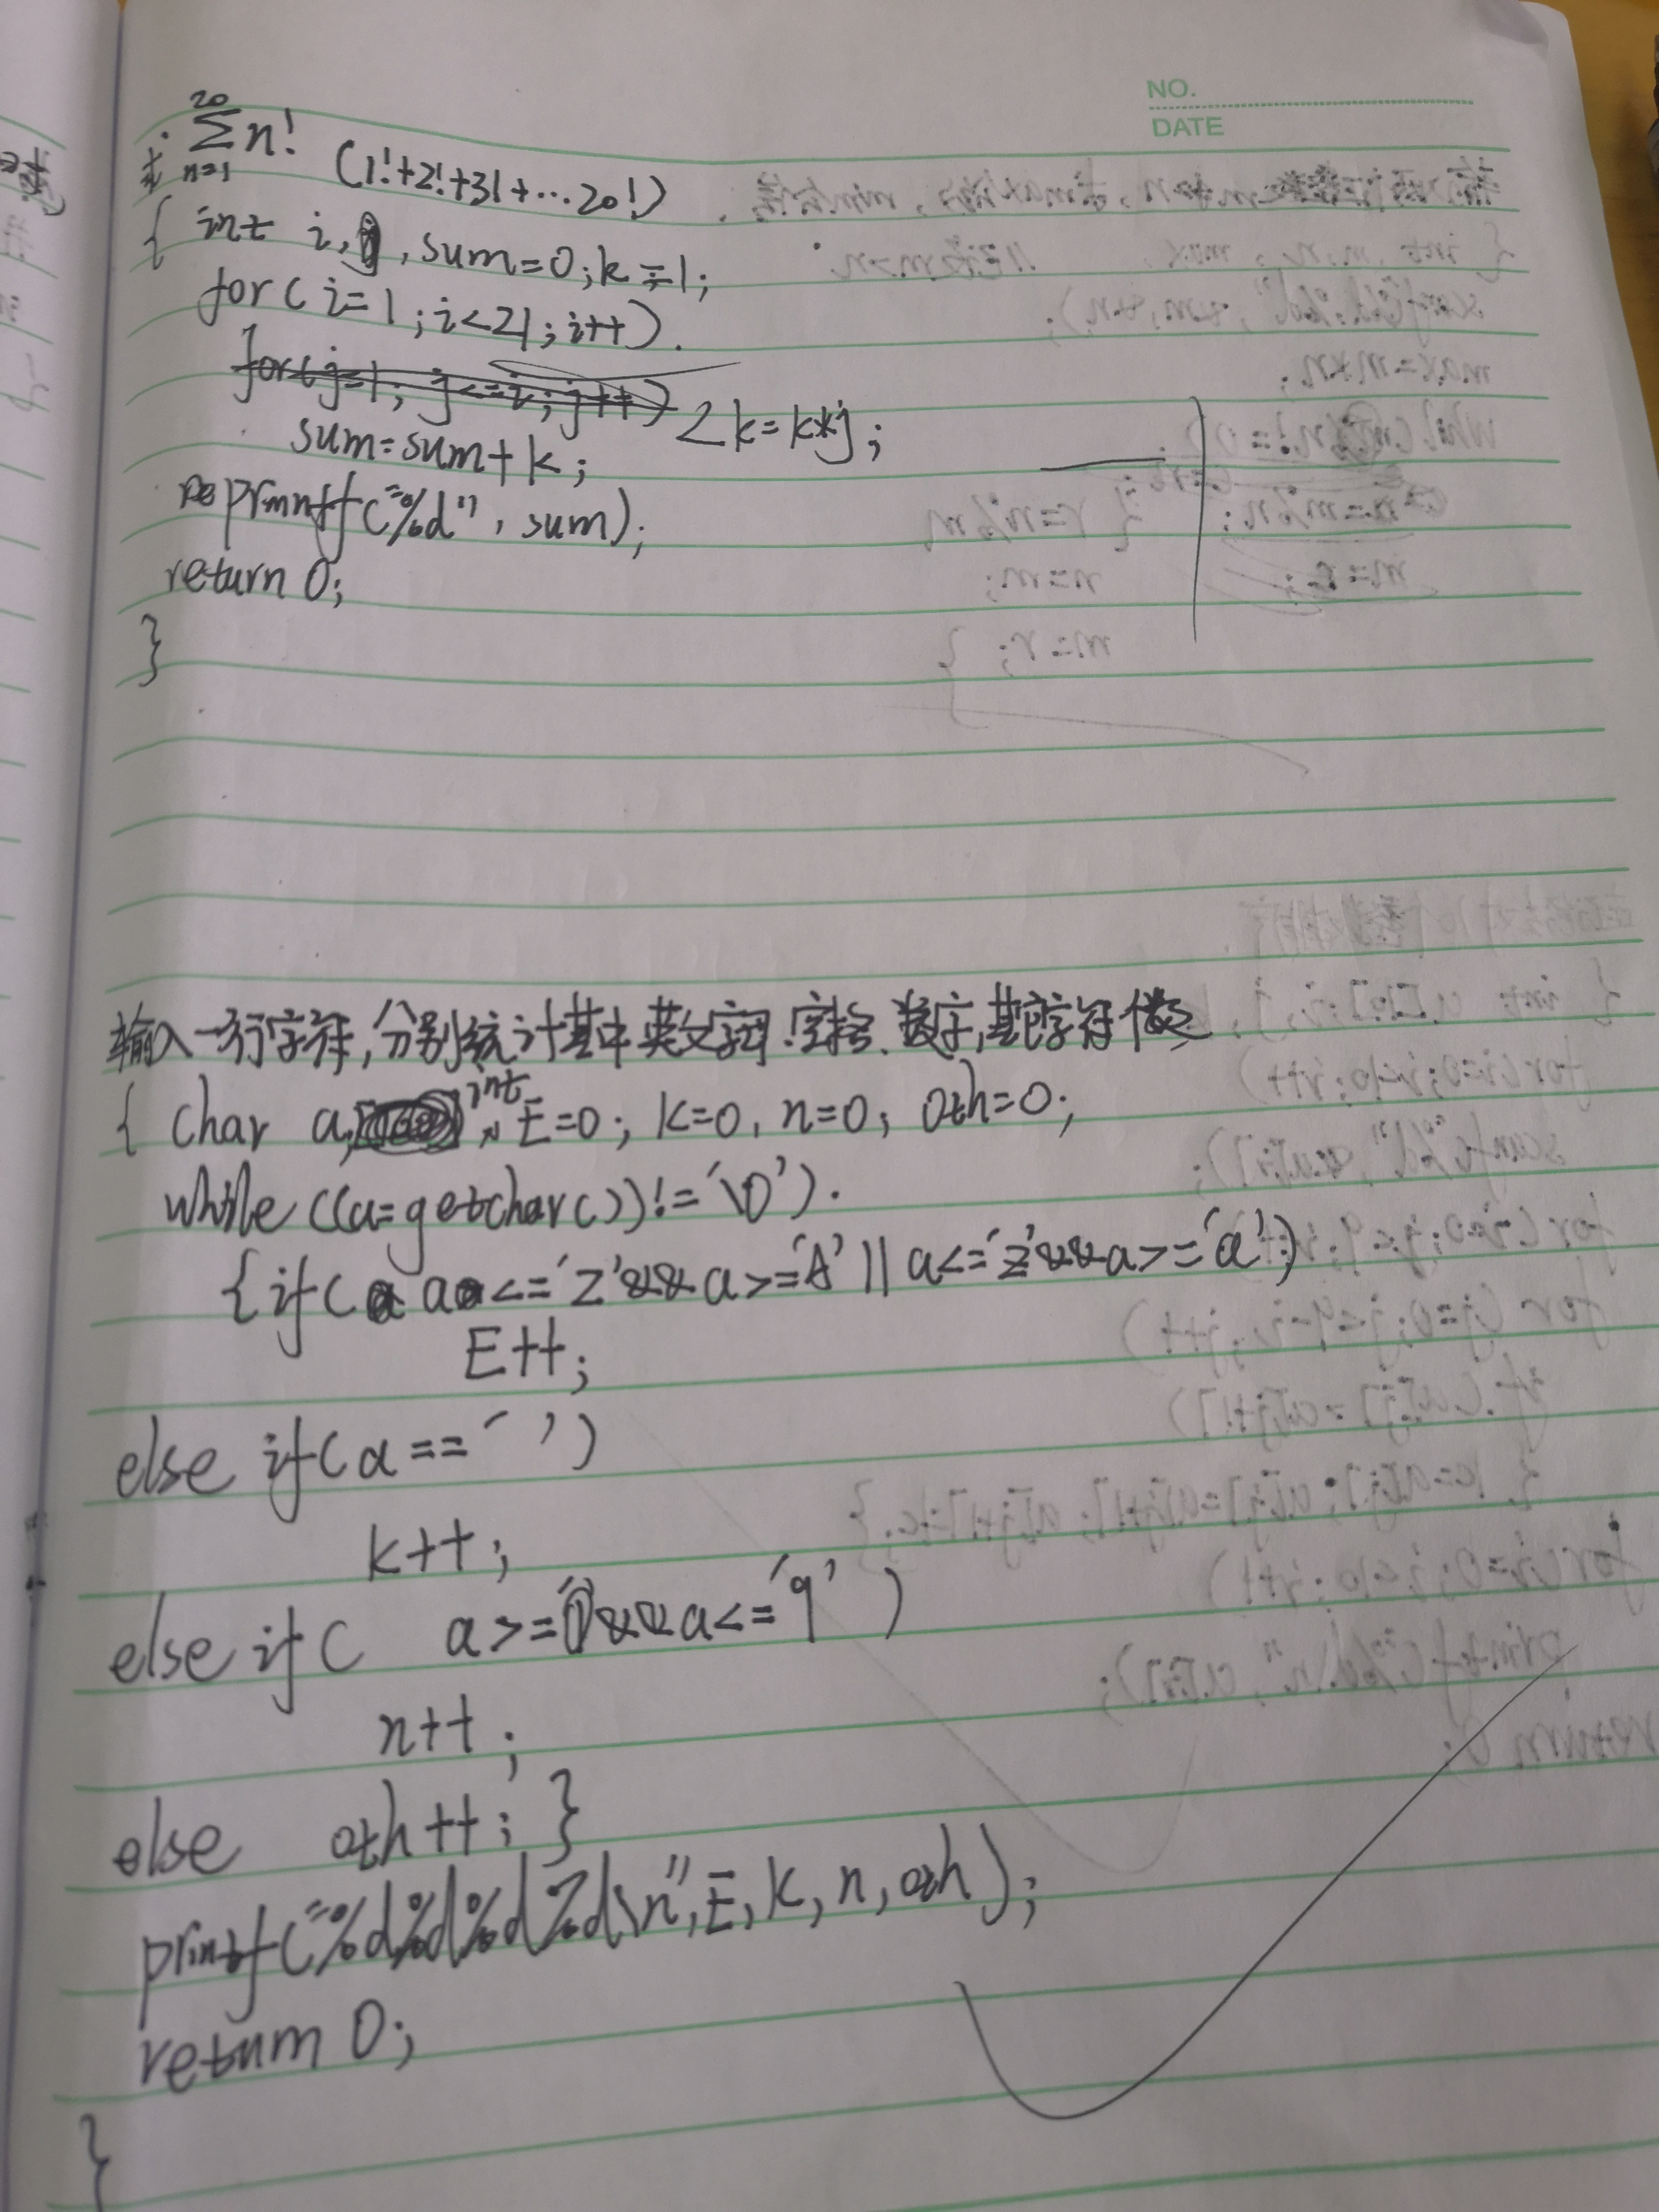 NO.
DATE
求 20
∑ n! (1!+2!+3!+…20!)
n=1
{ int i, , sum=0; k=1;
for( i=1; i<21; i++).
for(j=1; j<=i; j++) { k=k*j;
sum=sum+k;
printf("%d", sum);
return 0;
}
输入一行字符,分别统计其中英文字母、空格、数字,其它字符个数
{ char a, int E=0; k=0, n=0; oth=0;
while((a=getchar())!='\0').
{if( a<='Z'&&a>='A'||a<='z'&&a>='a')
E++;
else if(a==' ')
k++;
else if( a>='0'&&a<='9' )
n++;
else oth++; }
printf("%d%d%d%d\n",E,k,n,oth);
return 0;
}